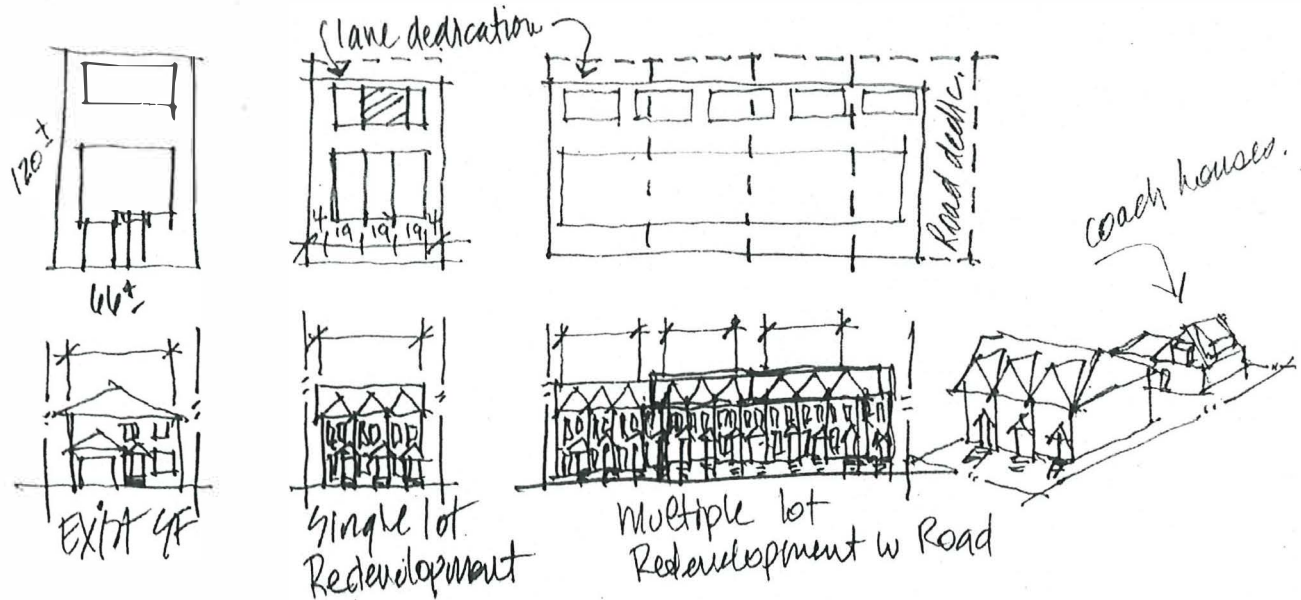 lane dedication
120±
66±
4 19 19 19 4
Road dedic.
coach houses.
Exist SF
Single lot
Redevelopment
Multiple lot
Redevelopment w Road